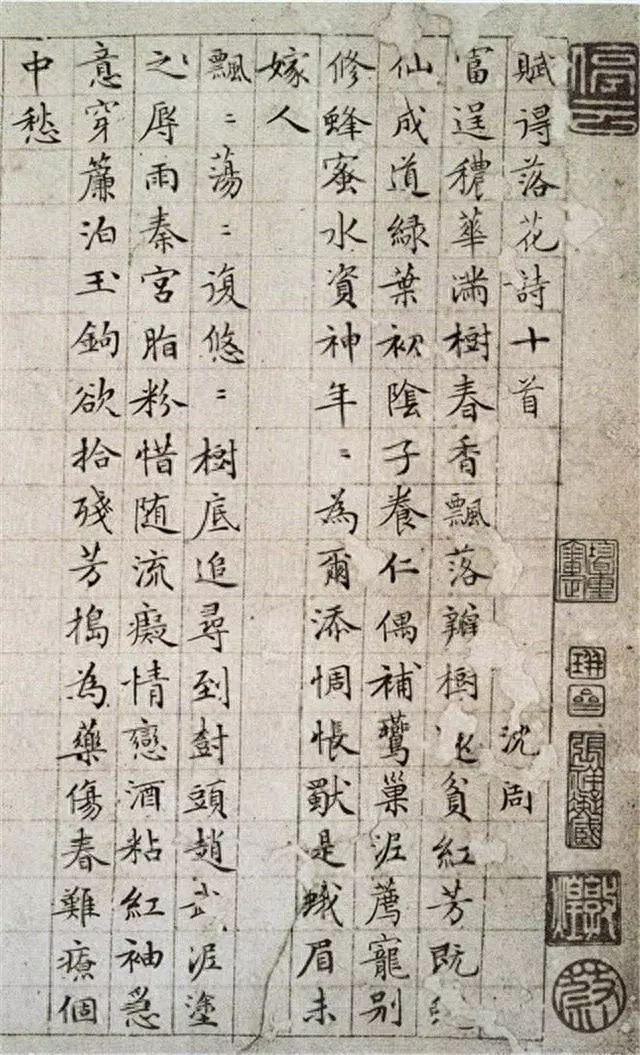 賦得落花詩十首 沈周
富逞穠華滿樹春香飄落瓣樹貧紅芳既
仙成道綠葉初陰子養仁偶補鶯巢泥薦寵別
修蜂蜜水資神年〻為爾添惆悵是蛾眉未
嫁人
飄〻蕩〻復悠〻樹底追尋到樹頭趙武泥塗
之辱雨秦宮脂粉惜随流癡情戀酒粘紅袖急
意穿簾泊玉鉤欲拾殘芳搗為藥傷春難療個
中愁
停雲